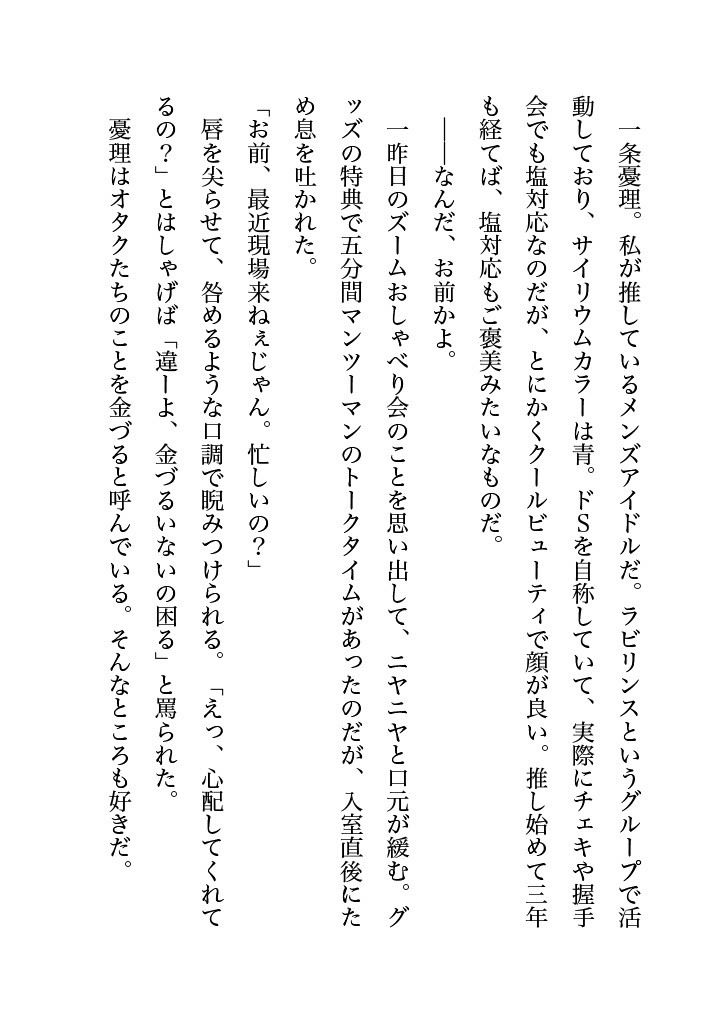 一条憂理。私が推しているメンズアイドルだ。ラビリンスというグループで活
動しており、サイリウムカラーは青。ドSを自称していて、実際にチェキや握手
会でも塩対応なのだが、とにかくクールビューティで顔が良い。推し始めて三年
も経てば、塩対応もご褒美みたいなものだ。
　――なんだ、お前かよ。
　一昨日のズームおしゃべり会のことを思い出して、ニヤニヤと口元が緩む。グ
ッズの特典で五分間マンツーマンのトークタイムがあったのだが、入室直後にた
め息を吐かれた。
「お前、最近現場来ねぇじゃん。忙しいの？」
　唇を尖らせて、咎めるような口調で睨みつけられる。「えっ、心配してくれて
るの？」とはしゃげば「違ーよ、金づるいないの困る」と罵られた。
　憂理はオタクたちのことを金づると呼んでいる。そんなところも好きだ。